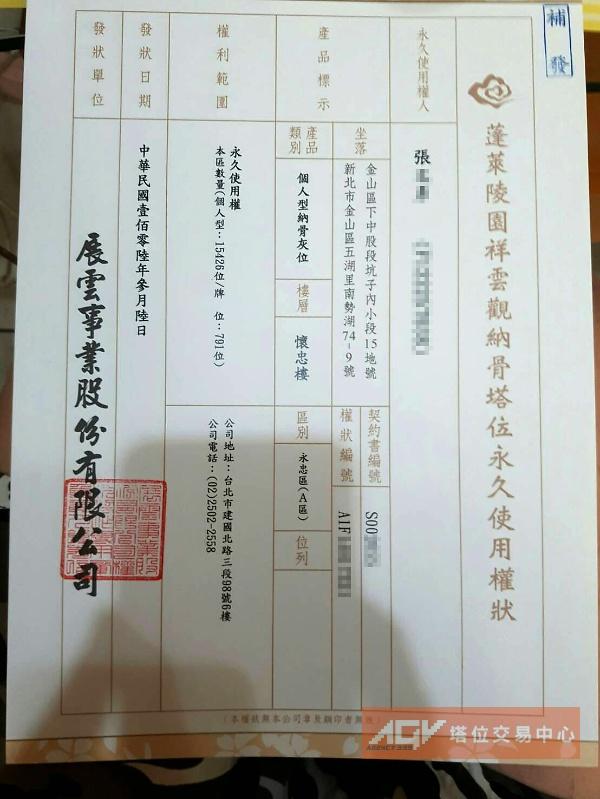 補發
蓬萊陵園祥雲觀納骨塔位永久使用權狀
永久使用權人
張
產品標示
坐落
金山區下中股段坑子內小段15地號
新北市金山區五湖里南勢湖74-9號
契約書編號
S00
權狀編號
A1F
產品類別
個人型納骨灰位
樓層
懷忠樓
區別
永忠區(A區)
位列
權利範圍
永久使用權
本區數量(個人型:15426位/牌 位:791位)
公司地址:台北市建國北路三段98號6樓
公司電話:(02)2502-2558
發狀日期
中華民國壹佰零陸年參月陸日
發狀單位
展雲事業股份有限公司
(本權狀無本公司章及鋼印者無效)
AGV 塔位交易中心